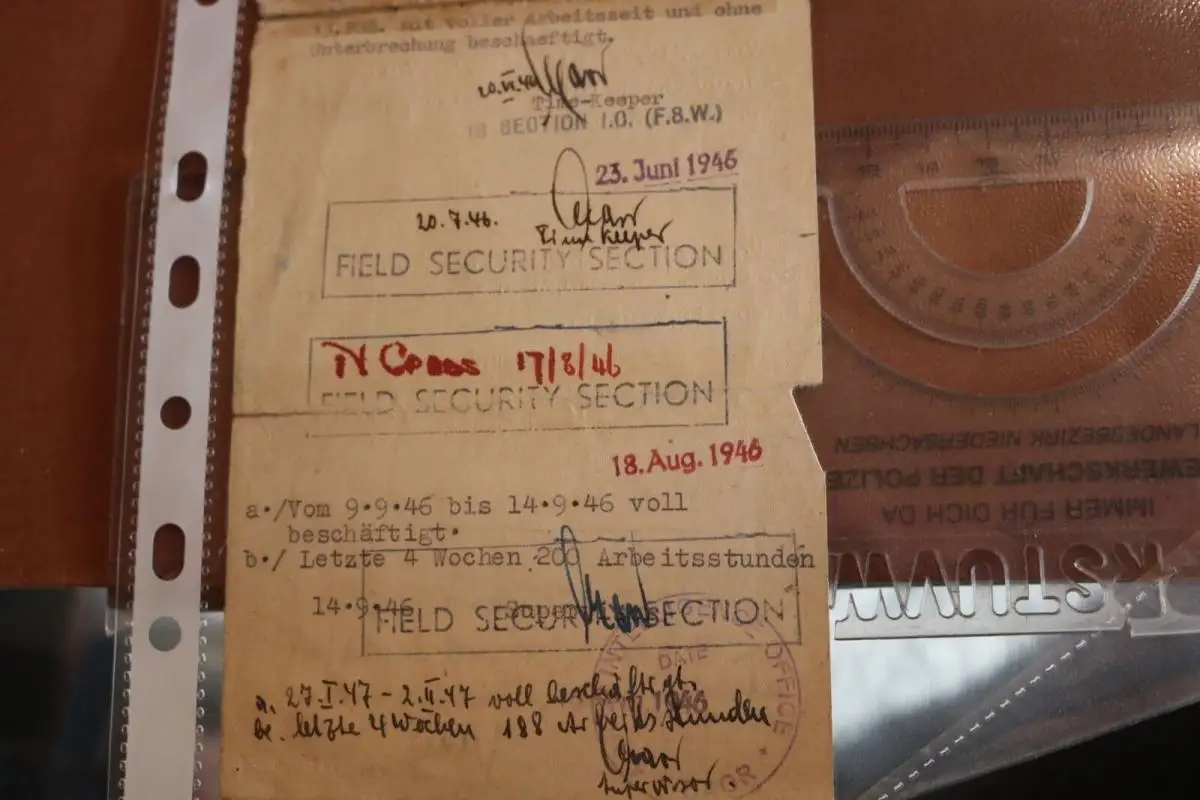 mit voller Arbeitszeit und ohne
Unterbrechung beschaeftigt.
20.VI.46
Time-Keeper
SECTION I.O. (F.S.W.)
23. Juni 1946
20.7.46.
Time Keeper
FIELD SECURITY SECTION
17/8/46
FIELD SECURITY SECTION
18. Aug. 1946
a./Vom 9.9.46 bis 14.9.46 voll
beschäftigt.
b./ Letzte 4 Wochen 200 Arbeitsstunden
14.9.46
FIELD SECURITY SECTION
DATE
OFFICE
1946
a. 27.I.47 - 2.II.47 voll beschäftigt.
b. letzte 4 Wochen 188 Arbeitsstunden
Supervisor
IMMER FÜR DICH DA
GEWERKSCHAFT DER POLIZEI
LANDESBEZIRK NIEDERSACHSEN
RSTUVW